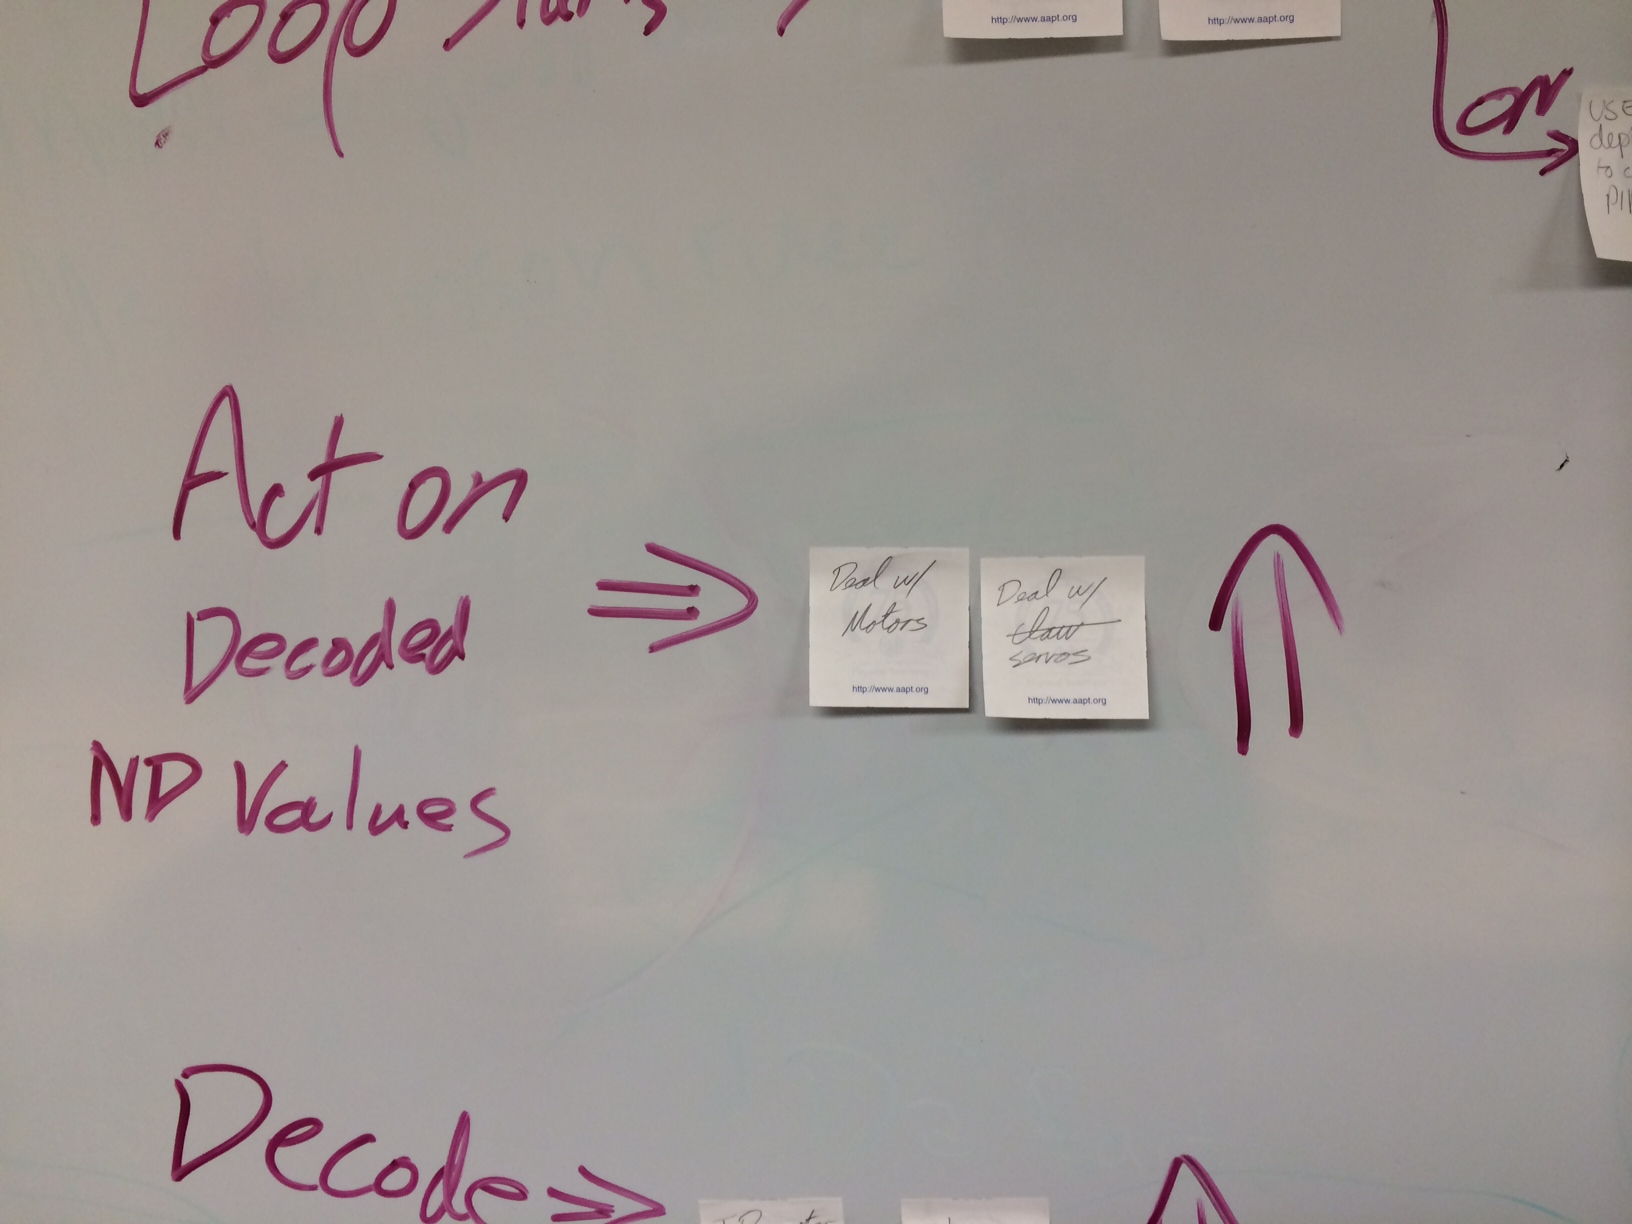 Loop
http://www.aapt.org
http://www.aapt.org
ON
USE
to
Act on
Decoded
ND Values
Deal w/
Motors
http://www.aapt.org
Deal w/
claw
servos
http://www.aapt.org
Decode